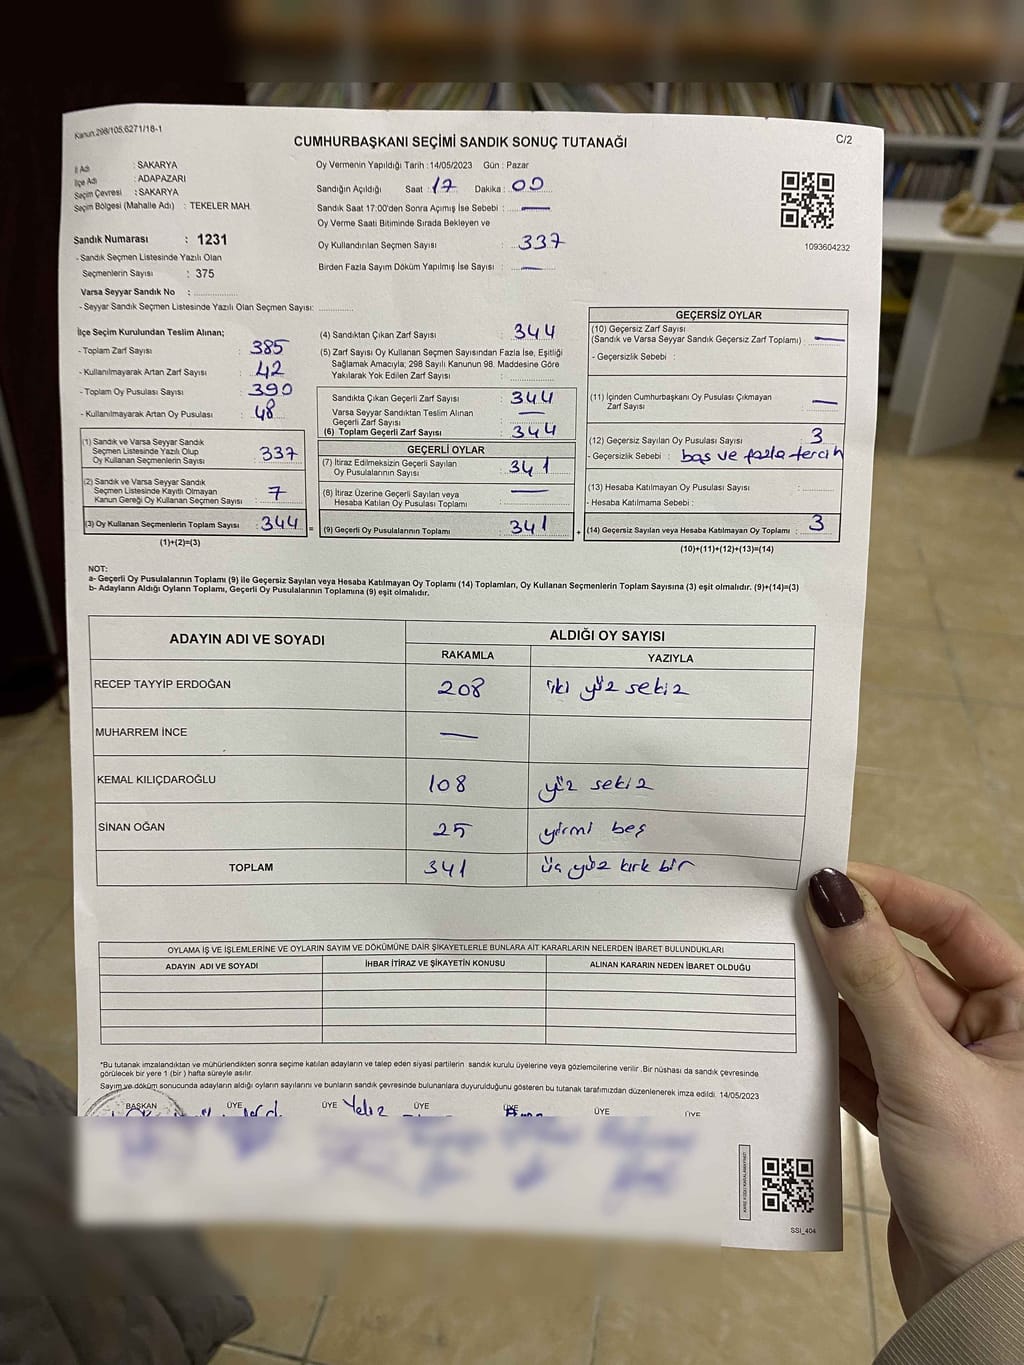 Kanun.298/105,6271/16-1
CUMHURBAŞKANI SEÇİMİ SANDIK SONUÇ TUTANAĞI
C/2
İl Adı : SAKARYA
İlçe Adı : ADAPAZARI
Seçim Çevresi : SAKARYA
Seçim Bölgesi (Mahalle Adı) : TEKELER MAH.
Sandık Numarası : 1231
- Sandık Seçmen Listesinde Yazılı Olan
Seçmenlerin Sayısı : 375
Varsa Seyyar Sandık No :
- Seyyar Sandık Seçmen Listesinde Yazılı Olan Seçmen Sayısı:
Oy Vermenin Yapıldığı Tarih :14/05/2023 Gün : Pazar
Sandığın Açıldığı Saat : 17 Dakika : 00
Sandık Saat 17:00'den Sonra Açımış İse Sebebi : —
Oy Verme Saati Bitiminde Sırada Bekleyen ve
Oy Kullandırılan Seçmen Sayısı : 337
Birden Fazla Sayım Döküm Yapılmış İse Sayısı : —
1093604232
İlçe Seçim Kurulundan Teslim Alınan;
- Toplam Zarf Sayısı : 385
- Kullanılmayarak Artan Zarf Sayısı : 42
- Toplam Oy Pusulası Sayısı : 390
- Kullanılmayarak Artan Oy Pusulası : 48
(1) Sandık ve Varsa Seyyar Sandık
Seçmen Listesinde Yazılı Olup
Oy Kullanan Seçmenlerin Sayısı : 337
(2) Sandık ve Varsa Seyyar Sandık
Seçmen Listesinde Kayıtlı Olmayan
Kanun Gereği Oy Kullanan Seçmen Sayısı : 7
(3) Oy Kullanan Seçmenlerin Toplam Sayısı : 344 =
(1)+(2)=(3)
(4) Sandıktan Çıkan Zarf Sayısı : 344
(5) Zarf Sayısı Oy Kullanan Seçmen Sayısından Fazla İse, Eşitliği
Sağlamak Amacıyla; 298 Sayılı Kanunun 98. Maddesine Göre
Yakılarak Yok Edilen Zarf Sayısı :
Sandıkta Çıkan Geçerli Zarf Sayısı : 344
Varsa Seyyar Sandıktan Teslim Alınan
Geçerli Zarf Sayısı : —
(6) Toplam Geçerli Zarf Sayısı : 344
GEÇERLİ OYLAR
(7) İtiraz Edilmeksizin Geçerli Sayılan
Oy Pusulalarının Sayısı : 341
(8) İtiraz Üzerine Geçerli Sayılan veya
Hesaba Katılan Oy Pusulası Toplamı : —
(9) Geçerli Oy Pusulalarının Toplamı : 341 +
GEÇERSİZ OYLAR
(10) Geçersiz Zarf Sayısı
(Sandık ve Varsa Seyyar Sandık Geçersiz Zarf Toplamı) : —
- Geçersizlik Sebebi :
(11) İçinden Cumhurbaşkanı Oy Pusulası Çıkmayan
Zarf Sayısı : —
(12) Geçersiz Sayılan Oy Pusulası Sayısı : 3
- Geçersizlik Sebebi : boş ve fazla tercih
(13) Hesaba Katılmayan Oy Pusulası Sayısı :
- Hesaba Katılmama Sebebi :
(14) Geçersiz Sayılan veya Hesaba Katılmayan Oy Toplamı : 3
(10)+(11)+(12)+(13)=(14)
NOT:
a- Geçerli Oy Pusulalarının Toplamı (9) ile Geçersiz Sayılan veya Hesaba Katılmayan Oy Toplamı (14) Toplamları, Oy Kullanan Seçmenlerin Toplam Sayısına (3) eşit olmalıdır. (9)+(14)=(3)
b- Adayların Aldığı Oyların Toplamı, Geçerli Oy Pusulalarının Toplamına (9) eşit olmalıdır.
ADAYIN ADI VE SOYADI
ALDIĞI OY SAYISI
RAKAMLA YAZIYLA
RECEP TAYYİP ERDOĞAN 208 iki yüz sekiz
MUHARREM İNCE —
KEMAL KILIÇDAROĞLU 108 yüz sekiz
SİNAN OĞAN 25 yirmi beş
TOPLAM 341 üç yüz kırk bir
OYLAMA İŞ VE İŞLEMLERİNE VE OYLARIN SAYIM VE DÖKÜMÜNE DAİR ŞİKAYETLERLE BUNLARA AİT KARARLARIN NELERDEN İBARET BULUNDUKLARI
ADAYIN ADI VE SOYADI İHBAR İTİRAZ VE ŞİKAYETİN KONUSU ALINAN KARARIN NEDEN İBARET OLDUĞU
*Bu tutanak imzalandıktan ve mühürlendikten sonra seçime katılan adayların ve talep eden siyasi partilerin sandık kurulu üyelerine veya gözlemcilerine verilir .Bir nüshası da sandık çevresinde
görülecek bir yere 1 (bir ) hafta süreyle asılır.
Sayım ve döküm sonucunda adayların aldığı oyların sayılarını ve bunların sandık çevresinde bulunanlara duyurulduğunu gösteren bu tutanak tarafımızdan düzenlenerek imza edildi. 14/05/2023
BAŞKAN ÜYE ÜYE Yeliz ÜYE ÜYE ÜYE ÜYE
SSI_404